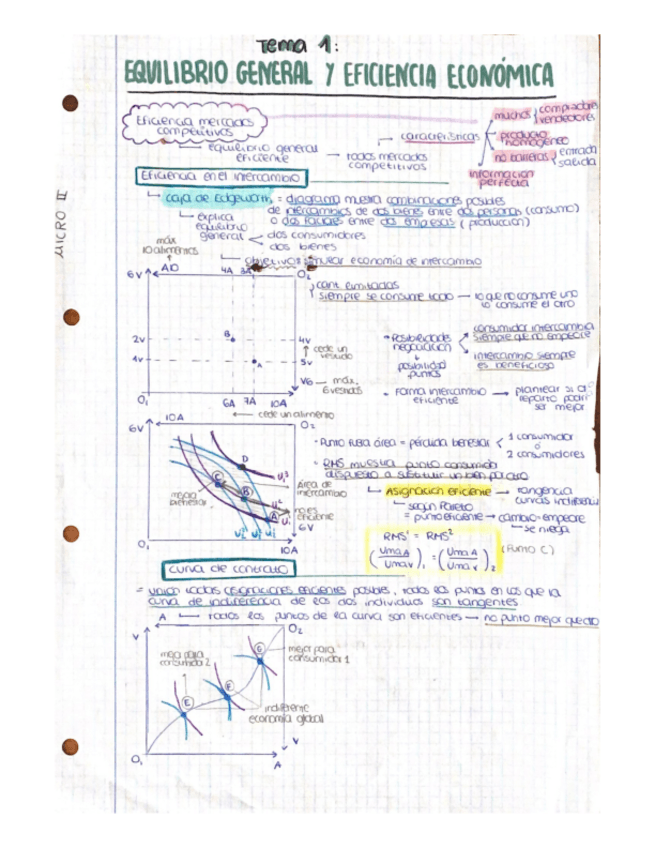 Tema 1:
EQUILIBRIO GENERAL Y EFICIENCIA ECONÓMICA
MICRO II
Eficiencia mercados
competitivos
equilibrio general
eficiente
todos mercados
competitivos
características
muchos
compradores
vendedores
producto
homogéneo
no barreras
entrada
salida
información
perfecta
Eficiencia en el intercambio
Caja de Edgeworth
= diagrama muestra combinaciones posibles
de intercambios de dos bienes entre dos personas (consumo)
o dos factores entre dos empresas (producción)
explica
equilibrio
general
dos consumidores
dos bienes
máx
10 alimentos
objetivos:
economía de intercambio
6V
A10
4A 3A
O2
cant. limitadas
siempre se consume todo
lo que no consume uno
lo consume el otro
2V
B
4V
cede un
vestido
1V
A
5V
V6
máx.
6 vestidos
O1
6A 7A 10A
cede un alimento
Posibilidades
negociación
posibilidad
puntos
consumidor intercambia
siempre que no empeore
intercambio siempre
es beneficioso
forma intercambio
eficiente
plantear si
reparto
ser mejor
10A
6V
O2
D
C
B
A
área de
intercambio
mejora
bienestar
no es
eficiente
6V
O1
10A
Punto fuera área = pérdida bienestar
1 consumidor
o
2 consumidores
RMS muestra punto consumidor
dispuesto a sustituir un bien por otro
Asignación eficiente
tangencia
curvas indiferencia
según Pareto
= punto eficiente
cambio = empeore
se niega
RMS¹ = RMS²
(UmaA / Umav)1 = (UmaA / Umav)2
(Punto C)
Curva de contrato
= unión todas asignaciones eficientes posibles, todos los puntos en los que la
curva de indiferencia de los dos individuos son tangentes
todos los puntos de la curva son eficientes
no punto mejor que otro
A
V
O2
mejor para
consumidor 2
G
mejor para
consumidor 1
E
F
indiferente
economía global
V
O1
A